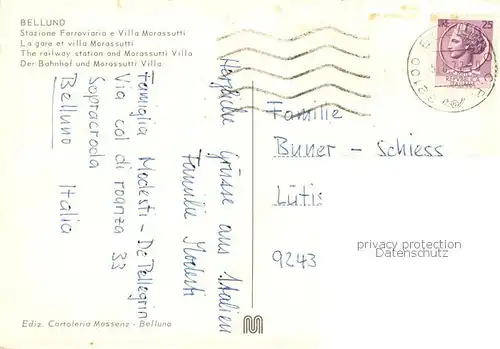 BELLUNO
Stazione Ferroviaria e Villa Morassutti
La gare et villa Morassutti
The railway station and Morassutti Villa
Der Bahnhof und Morassutti Villa
Herzliche Grüsse aus Italien
Familie Modesti
Famiglia Modesti - De Pellegrin
Via col di roanza 33
Sopracroda
Belluno Italia
25
Familie
Buner - Schiess
Lütis
9243
privacy protection
Datenschutz
Ediz. Cartoleria Massenz - Belluno